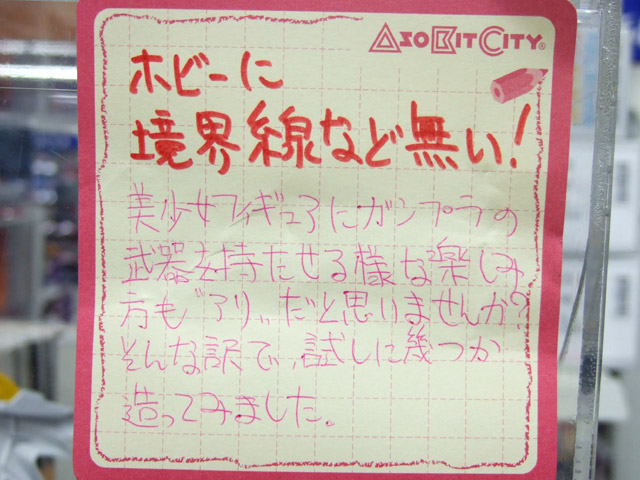 AsoBitCity®
ホビーに
境界線など無い!
美少女フィギュアにガンプラの
武器を持たせる様な楽しみ
方も"アリ"だと思いませんか?
そんな訳で、試しに幾つか
造ってみました。